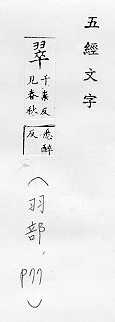 五經文字
翠
千反
見春秋
悉醉
反
(羽部, P77)